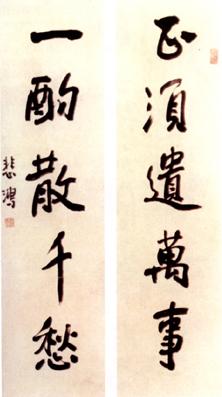 正須遺萬事
一酌散千愁
悲鴻